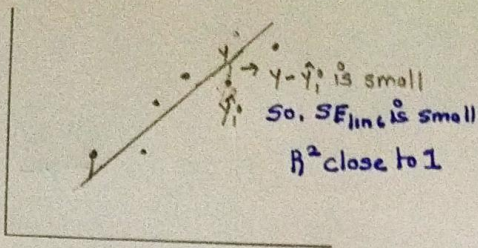 yᵢ
→ y - ŷᵢ is small
ŷᵢ
So, SE_line is small
R² close to 1